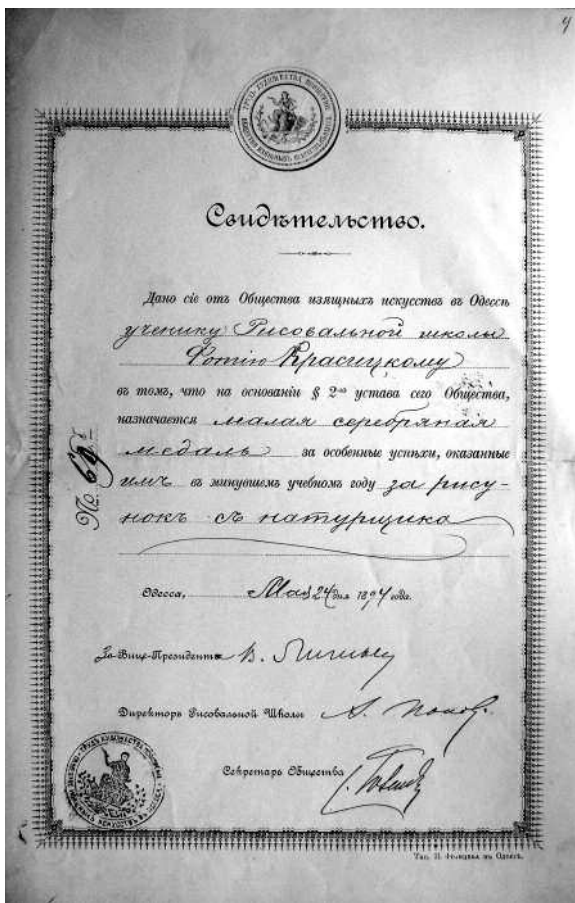 4
Свидѣтельство.
Дано сіе отъ Общества изящныхъ искусствъ въ Одессѣ
ученику Рисовальной школы
Фотію Красицкому
въ томъ, что на основаніи § 2-го устава сего Общества,
назначается малая серебряная
медаль за особенные успѣхи, оказанные
имъ въ минувшемъ учебномъ году за рису-
нокъ съ натурщика
№ 69
Одесса, Мая 24 дня 1894 года.
За Вице-Президента В.
Директоръ Рисовальной Школы А. Попов
Секретарь Общества
Тип. въ Одессѣ.